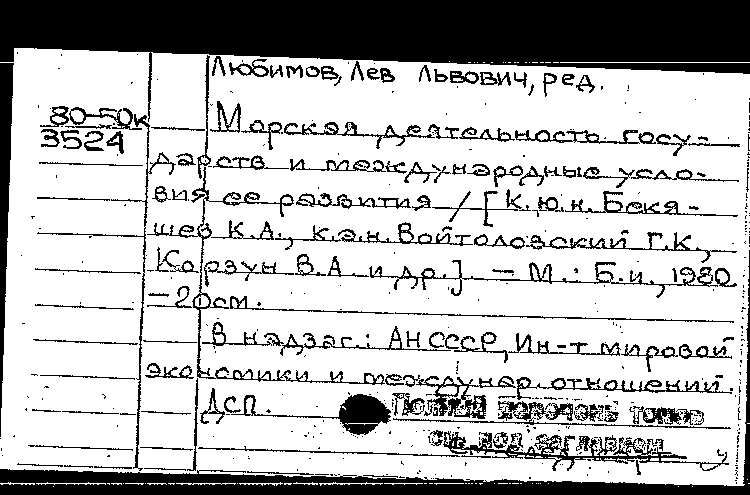 Любимов, Лев Львович, ред.
80-50к
3524
Морская деятельность госу-
дарств и международные усло-
вия ее развития / [К.ю.н. Бекя-
шев К.А., к.э.н. Войтоловский Г.К.,
Корзун В.А. и др.]. — М.: Б.и., 1980
— 20см.
В надзаг.: АН СССР, Ин-т мировой
экономики и междунар. отношений.
ДСП.
Полный перечень томов
см. под заглавием